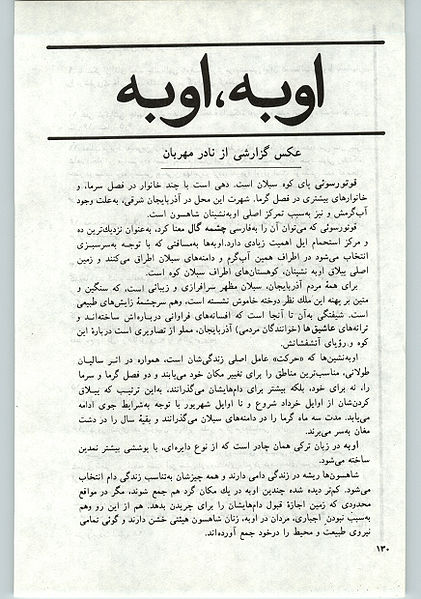 اوبه، اوبه
عکس گزارشی از نادر مهربان
قوتورسوئی پای کوه سبلان است. دهی است با چند خانوار در فصل سرما، و
خانوارهای بیشتری در فصل گرما. شهرت این محل در آذربایجان شرقی، به‌علت وجود
آب‌گرمش و نیز به‌سبب تمرکز اصلی اوبه‌نشینان شاهسون است.
قوتورسوئی که می‌توان آن را به‌فارسی چشمه گال معنا کرد، به‌عنوان نزدیك‌ترین ده
و مرکز استحمام ایل اهمیت زیادی دارد. اوبه‌ها به‌مسافتی که با توجه به‌سرسبزی
انتخاب می‌شود در اطراف همین آب‌گرم و دامنه‌های سبلان اطراق می‌کنند و زمین
اصلی ییلاق اوبه نشینان، کوهستان‌های اطراف سبلان کوه است.
برای همهٔ مردم آذربایجان، سبلان مظهر سرافرازی و زیبائی است، که سنگین و
متین بر پهنه این ملك نظر دوخته خاموش نشسته است، وهم سرچشمهٔ زایش‌های طبیعی
است. شیفتگی به‌آن تا آنجا است که افسانه‌های فراوانی درباره‌اش ساخته‌انـد و
ترانه‌های عاشیق‌ها (خوانندگان مردمی) آذربایجان، مملو از تصاویری است دربارهٔ این
کوه و رؤیای آتشفشانش.
اوبه‌نشین‌ها که «حرکت» عامل اصلی زندگی‌شان است، همواره در اثـر سالیـان
طولانی، مناسب‌ترین مناطق را برای تغییر مکان خود می‌یابند و دو فصل گرما و سرما
را، نه برای خود، بلکه بیشتر برای دام‌هایشان می‌گذرانند، به‌این ترتیـب که ییـلاق
کردن‌شان از اوایل خرداد شروع و تا اوایل شهریور با توجه به‌شرایط جوی ادامه
می‌یابد. مدت سه ماه گرما را در دامنه‌های سبلان می‌گذرانند و بقیهٔ سال را در دشت
مغان به‌سر می‌برند.
اوبه در زبان ترکی همان چادر است که از نوع دایره‌ای، با پوششی بیشتر نمدین
ساخته می‌شود.
شاهسون‌ها ریشه در زندگی دامی دارند و همه چیزشان به‌تناسب زندگی دام انتخاب
می‌شود. کم‌تر دیده شده چندین اوبه در یك مکان گرد هم جمع شوند، مگر در مواقع
محدودی که زمین اجازهٔ قبول دام‌هایشان را برای چریدن بدهد. هم از این رو وهم
به‌سبب نبودن اجباری، مردان در اوبه، زنان شاهسون هیئتی خشن دارند و گوئی تمامی
نیروی طبیعت و محیط را درخود جمع آورده‌اند.
۱۳۰